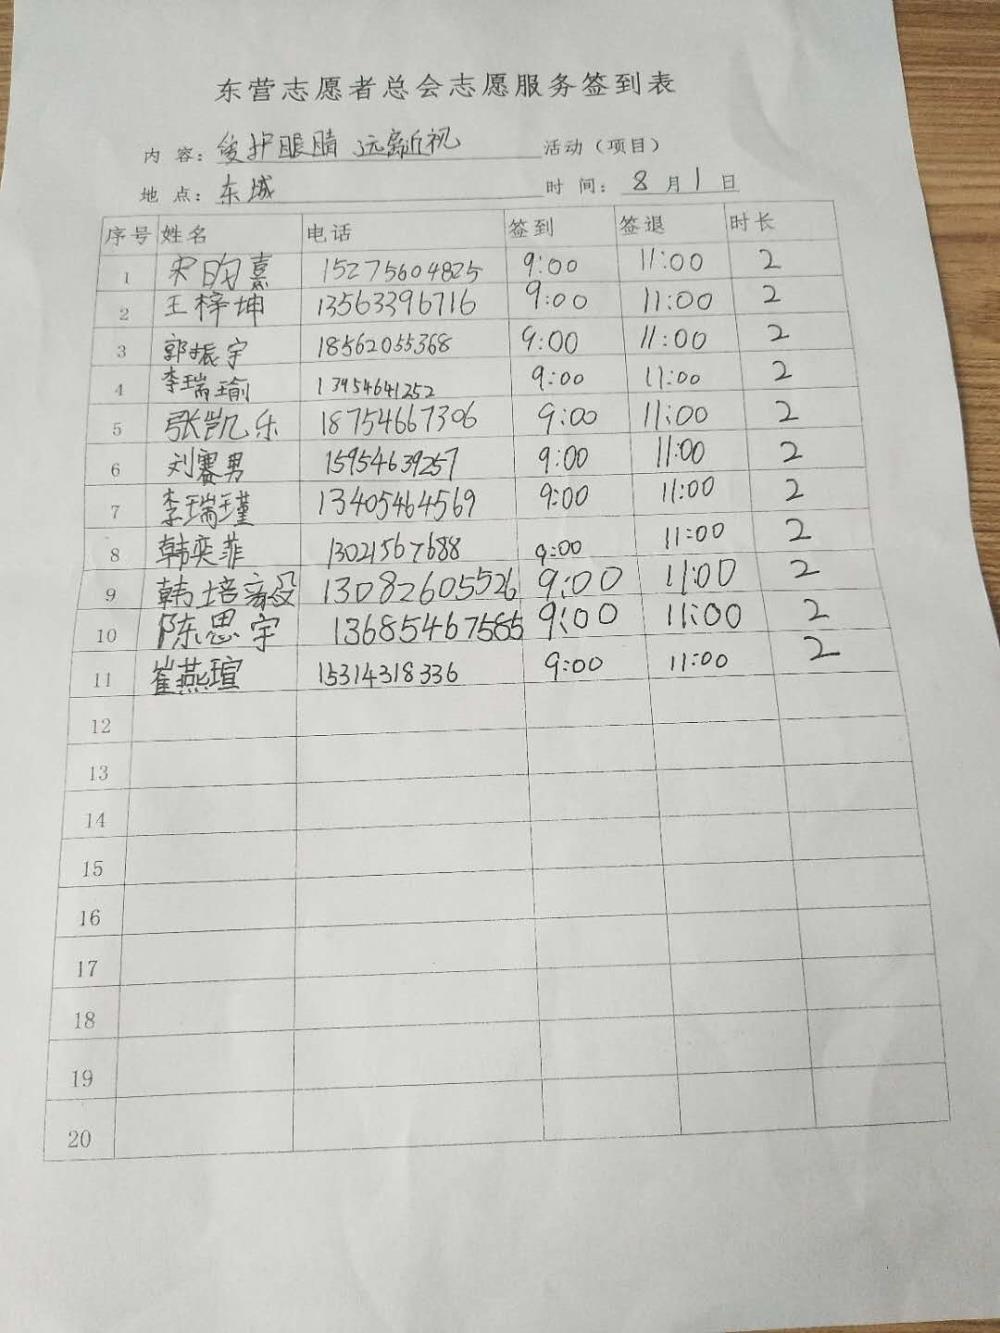 东营志愿者总会志愿服务签到表
内 容: 爱护眼睛 远离近视 活动（项目）
地 点: 东城 时 间: 8 月 1 日
序号 姓名 电话 签到 签退 时长
1 宋昀熹 15275604825 9:00 11:00 2
2 王梓坤 13563396716 9:00 11:00 2
3 郭振宇 18562055368 9:00 11:00 2
4 李瑞瑜 13954641252 9:00 11:00 2
5 张凯乐 18754667306 9:00 11:00 2
6 刘赛男 15954639257 9:00 11:00 2
7 李瑞瑾 13405464569 9:00 11:00 2
8 韩奕菲 13021567688 9:00 11:00 2
9 韩培 13082605526 9:00 11:00 2
10 陈思宇 13685467585 9:00 11:00 2
11 崔燕瑄 15314318336 9:00 11:00 2
12
13
14
15
16
17
18
19
20